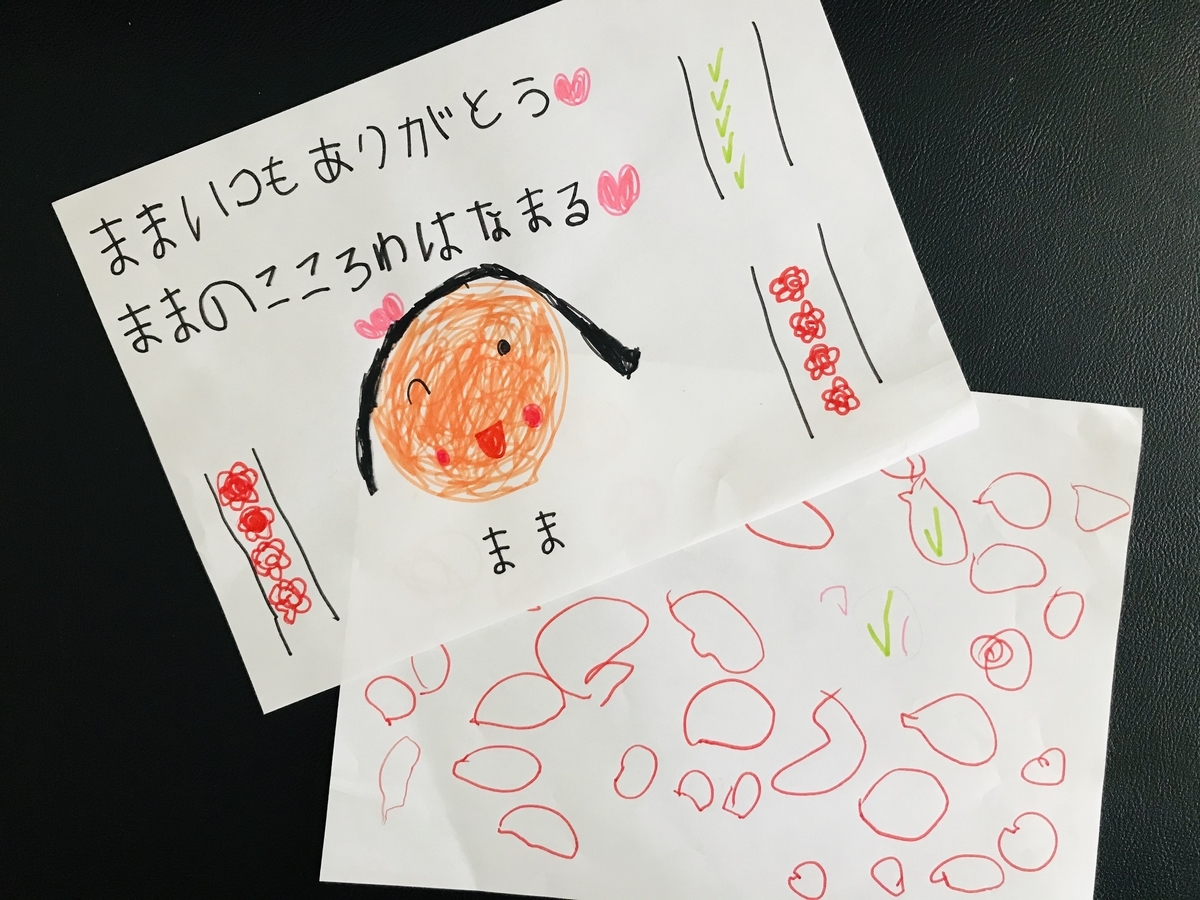 ままいつもありがとう
ままのこころわはなまる
まま